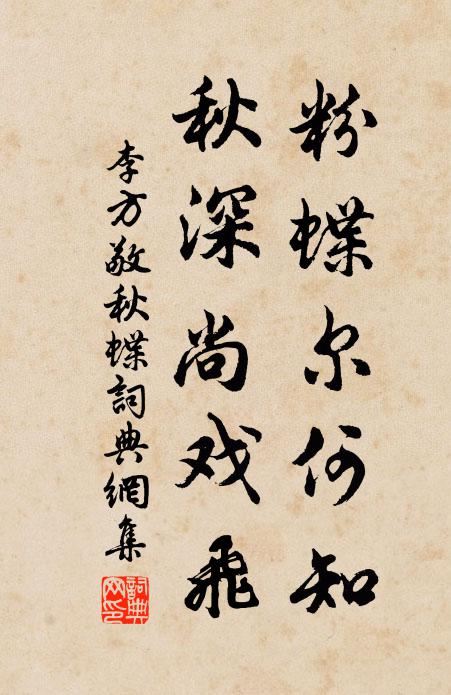 粉蝶尔何知
秋深尚戏飛
李方敬秋蝶詞典網集
詞典网印